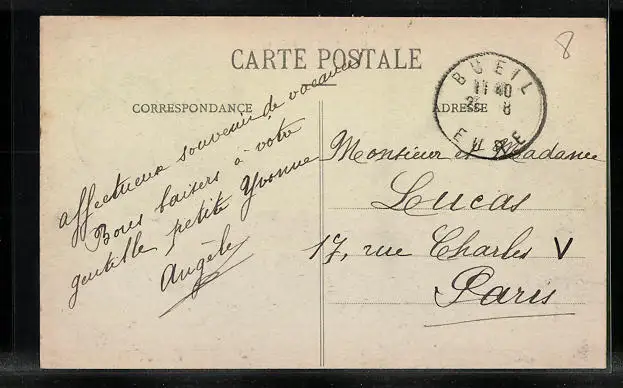 8
CARTE POSTALE
CORRESPONDANCE
ADRESSE
BUEIL
11 40
8
EURE
affectueux souvenir de vacances
Bons baisers à votre
gentille petite Yvonne
Angèle
Monsieur et Madame
Lucas
17, rue Charles V
Paris